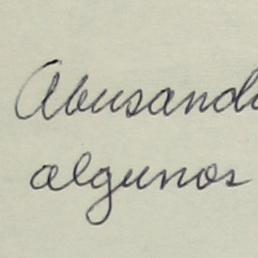 Abusando
algunos